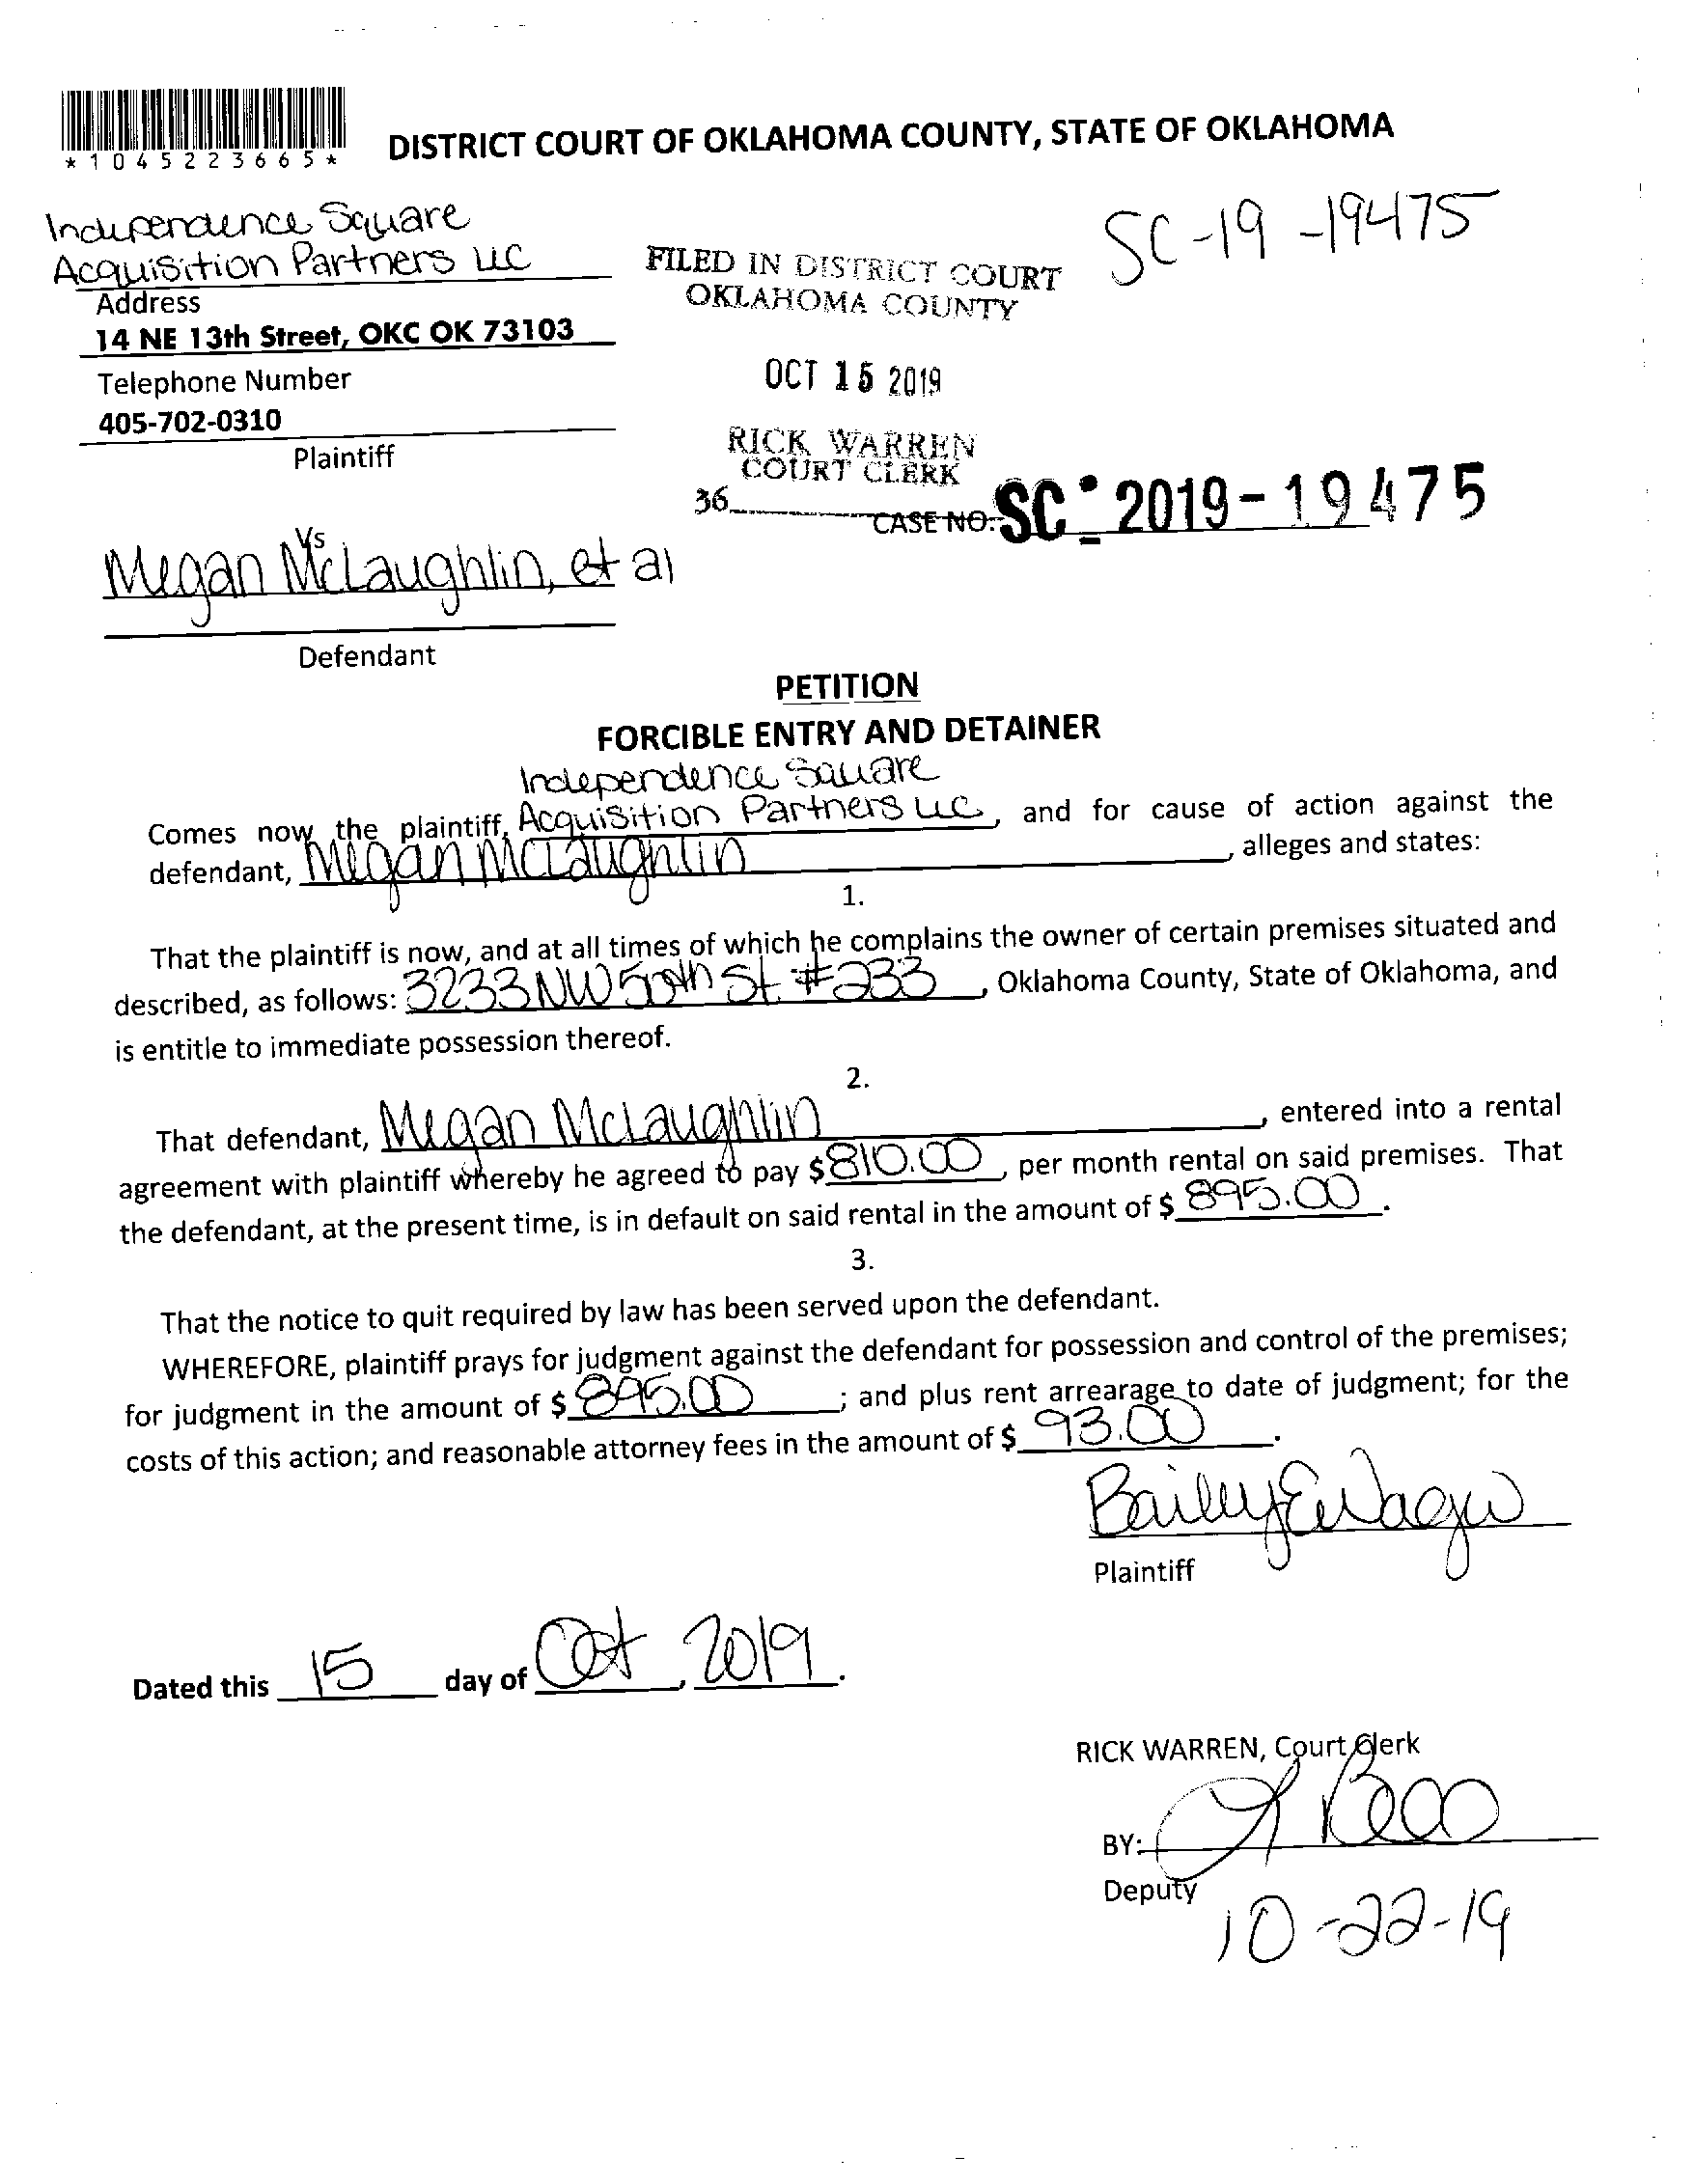 *1045223665*
DISTRICT COURT OF OKLAHOMA COUNTY, STATE OF OKLAHOMA
SC-19-19475
Independence Square
Acquisition Partners LLC
Address
14 NE 13th Street, OKC OK 73103
Telephone Number
405-702-0310
Plaintiff
FILED IN DISTRICT COURT
OKLAHOMA COUNTY
OCT 15 2019
RICK WARREN
COURT CLERK
36
CASE NO. SC-2019-19475
Vs
Megan McLaughlin, et al
Defendant
PETITION
FORCIBLE ENTRY AND DETAINER
Independence Square
Comes now the plaintiff, Acquisition Partners LLC, and for cause of action against the
defendant, Megan McLaughlin, alleges and states:
1.
That the plaintiff is now, and at all times of which he complains the owner of certain premises situated and
described, as follows: 3233 NW 50th St #233, Oklahoma County, State of Oklahoma, and
is entitle to immediate possession thereof.
2.
That defendant, Megan McLaughlin, entered into a rental
agreement with plaintiff whereby he agreed to pay $810.00, per month rental on said premises. That
the defendant, at the present time, is in default on said rental in the amount of $895.00.
3.
That the notice to quit required by law has been served upon the defendant.
WHEREFORE, plaintiff prays for judgment against the defendant for possession and control of the premises;
for judgment in the amount of $895.00; and plus rent arrearage to date of judgment; for the
costs of this action; and reasonable attorney fees in the amount of $93.00.
Bailey
Plaintiff
Dated this 15 day of Oct, 2019.
RICK WARREN, Court Clerk
BY:
Deputy
10-22-19